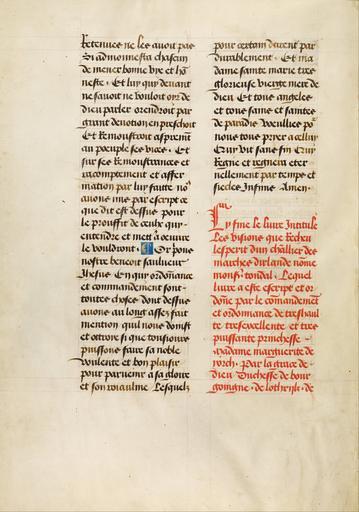 Retenues ne les avoit pas
Si admonnesta chascun
de mener bonne vye et hō
neste. Et luy qui devant
ne savoit ne vouloit oyr de
dieu parler orendroit par
grant devotion en preschoit
Et Remonstroit asprement
au poeuple ses vices. Et
sur ses Remonstrances et
racomptement et affer
mation par luy faitte no9
avons mis par escript ce
que dit est dessus pour
le prouffit de ceulx qui
entendre et mett' a oeuvre
le vouldront. Or pons
nostre benoit saulveur
Jhesus En qui ordonnāce
et commandement sont
toutes choses dont dessus
avons au long assez fait
mention quil nous doinst
et ottroie si que tousiours
puissons faire sa noble
voulente et bon plaisir
pour parvenir a sa gloire
et son roiaulme Lesquelz
pour certain durent par
durablement. Et ma
dame sainte marie tres
glorieuse vierge mere de
dieu Et tous angeles
et tous sains et saintes
de paradis Voeullies po'
nous tous pryer a celluy
Qui vit sans fin Qui
Regne et regnera eter
nellement par temps et
siecles Infinis Amen.
Cy fine le livre Intitule
Les visions que Recheu
lesperit dun chlīer des
marches dirlande nōme
monsr tondal. Lequel
livre a este escript et or
donne par le comandement
et ordonnance de treshaul
te tresexcellente et tres
puissante princhesse
Madame marguerite de
yorch. Par la grace de
dieu Duchesse de bour
goingne. de lothrijk. de